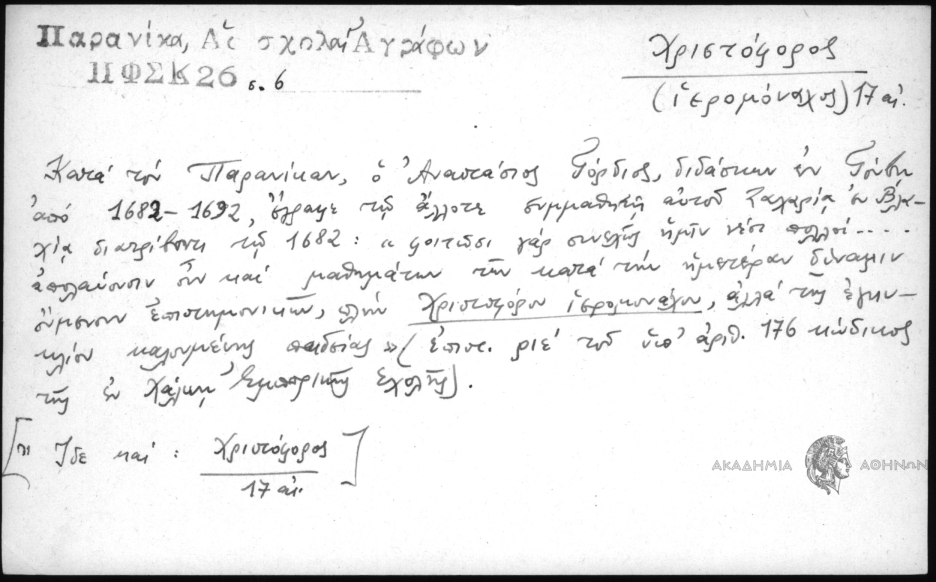 Παρανίκα, Αἱ σχολαὶ Ἀγράφων
ΠΦΣΚ 26 σ. 6
Χριστόφορος
(ἱερομόναχος) 17 αἰ.
Κατὰ τὸν Παρανίκαν, ὁ Ἀναστάσιος Γόρδιος, διδάσκων ἐν
ἀπὸ 1682-1692, ἔγραψε τῷ ἄλλοτε συμμαθητῇ αὐτοῦ Ζαχαρίᾳ ἐν Βλα-
χίᾳ διατρίβοντι τῷ 1682: « φοιτῶσι γὰρ συνεχῶς ἡμῖν νέοι πολλοί.....
ἀπολαύουσιν οὖν καὶ μαθημάτων τῶν κατὰ τὴν ἡμετέραν δύναμιν
ἐπιστημονικῶν, πλὴν Χριστοφόρου ἱερομονάχου, ἀλλὰ τῆς ἐγκυ-
κλίου καλουμένης παιδείας » (ἐπιστ. ριέ τοῦ ὑπ' ἀριθ. 176 κώδικος
τῆς ἐν Χάλκῃ Ἐμπορικῆς Σχολῆς).
[Ἴδε καὶ: Χριστόφορος
17 αἰ.]
ΑΚΑΔΗΜΙΑ ΑΘΗΝΩΝ